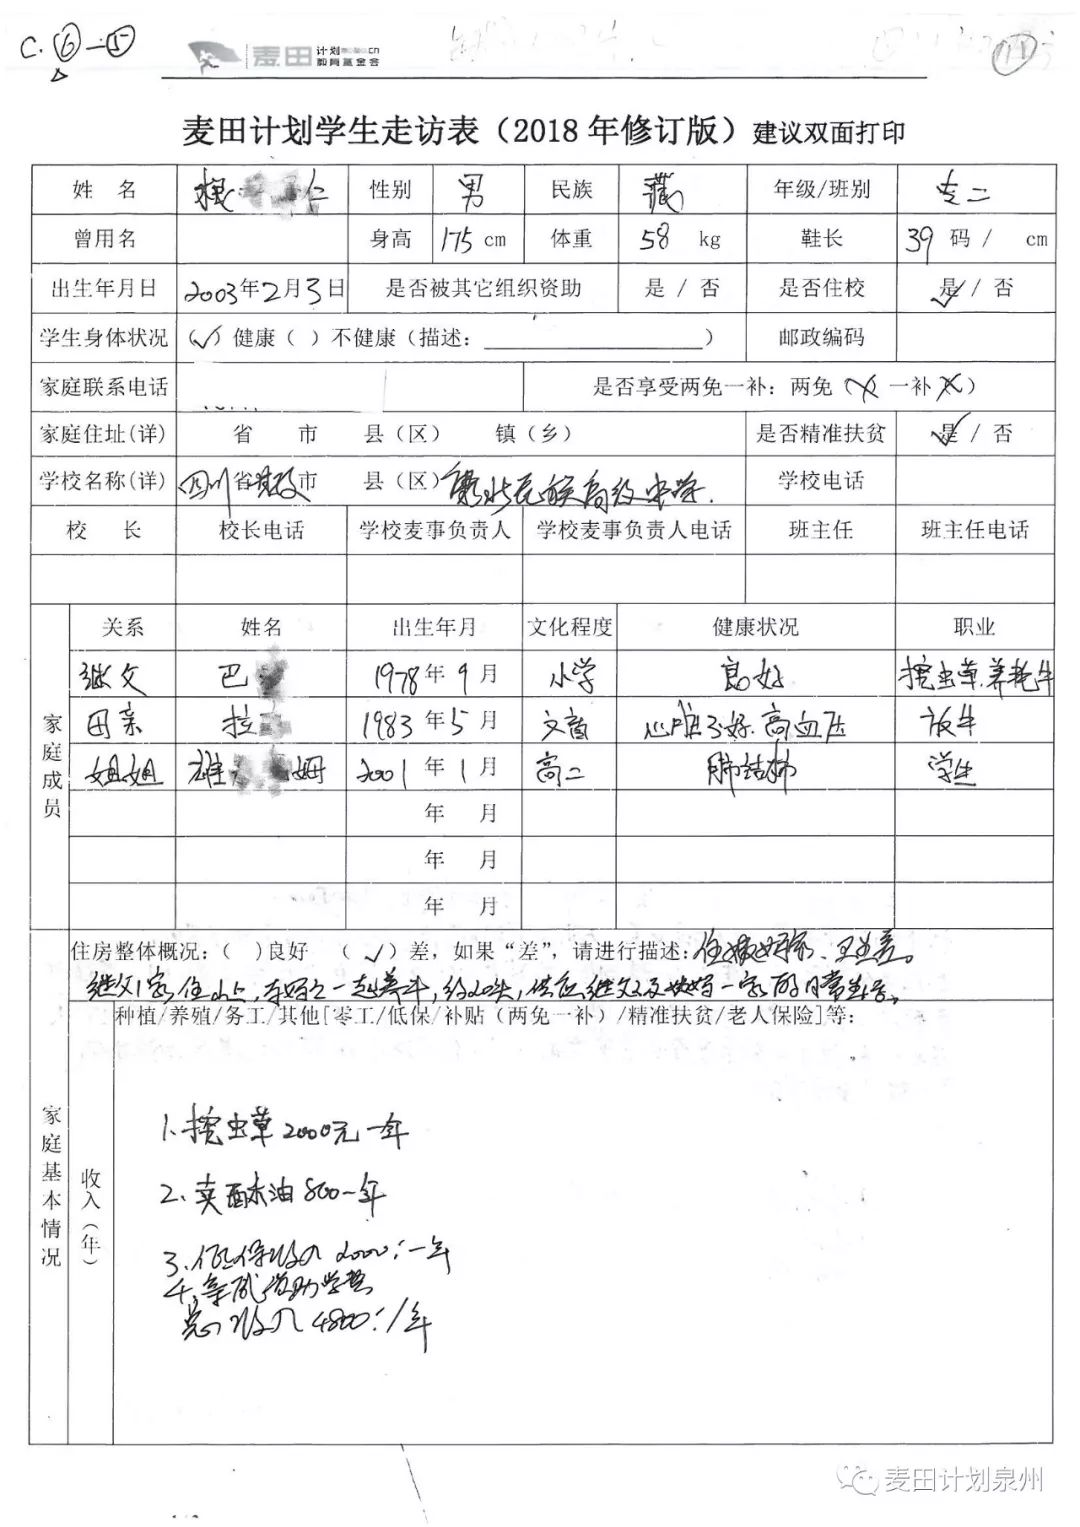 C.⑥—⑤
麦田 计划 教育基金会
麦田计划学生走访表（2018 年修订版）建议双面打印
姓 名 仁 性别 男 民族 藏 年级/班别
曾用名 身高 175 cm 体重 58 kg 鞋长 39 码 / cm
出生年月日 2003年2月3日 是否被其它组织资助 是 / 否 是否住校 是 / 否
学生身体状况 （✓）健康（ ）不健康（描述： ） 邮政编码
家庭联系电话 是否享受两免一补：两免（╳ 一补 ╳）
家庭住址(详) 省 市 县（区） 镇（乡） 是否精准扶贫 是 / 否
学校名称(详) 四川省 市 县（区） 民族高级中学. 学校电话
校 长 校长电话 学校麦事负责人 学校麦事负责人电话 班主任 班主任电话
家庭成员
关系 姓名 出生年月 文化程度 健康状况 职业
继父 巴 1978年9月 小学 良好 挖虫草.养牦牛
母亲 拉 1983年5月 文盲 心脏不好.高血压 放牛
姐姐 雄 姆 2001年1月 高二 肺结核 学生
年 月
年 月
年 月
住房整体概况：（ ）良好 （ ✓ ）差，如果“差”，请进行描述：
继父家住山上, 一起养牛, 约20头, 供应继父及 一家的日常生活。
家庭基本情况
收入（年）
种植/养殖/务工/其他[零工/低保/补贴（两免一补）/精准扶贫/老人保险]等：
1. 挖虫草 2000元一年
2. 卖酥油 800一年
3. 低保收入 2000:一年
4. 亲戚资助学费
总收入 4800:/年
麦田计划泉州